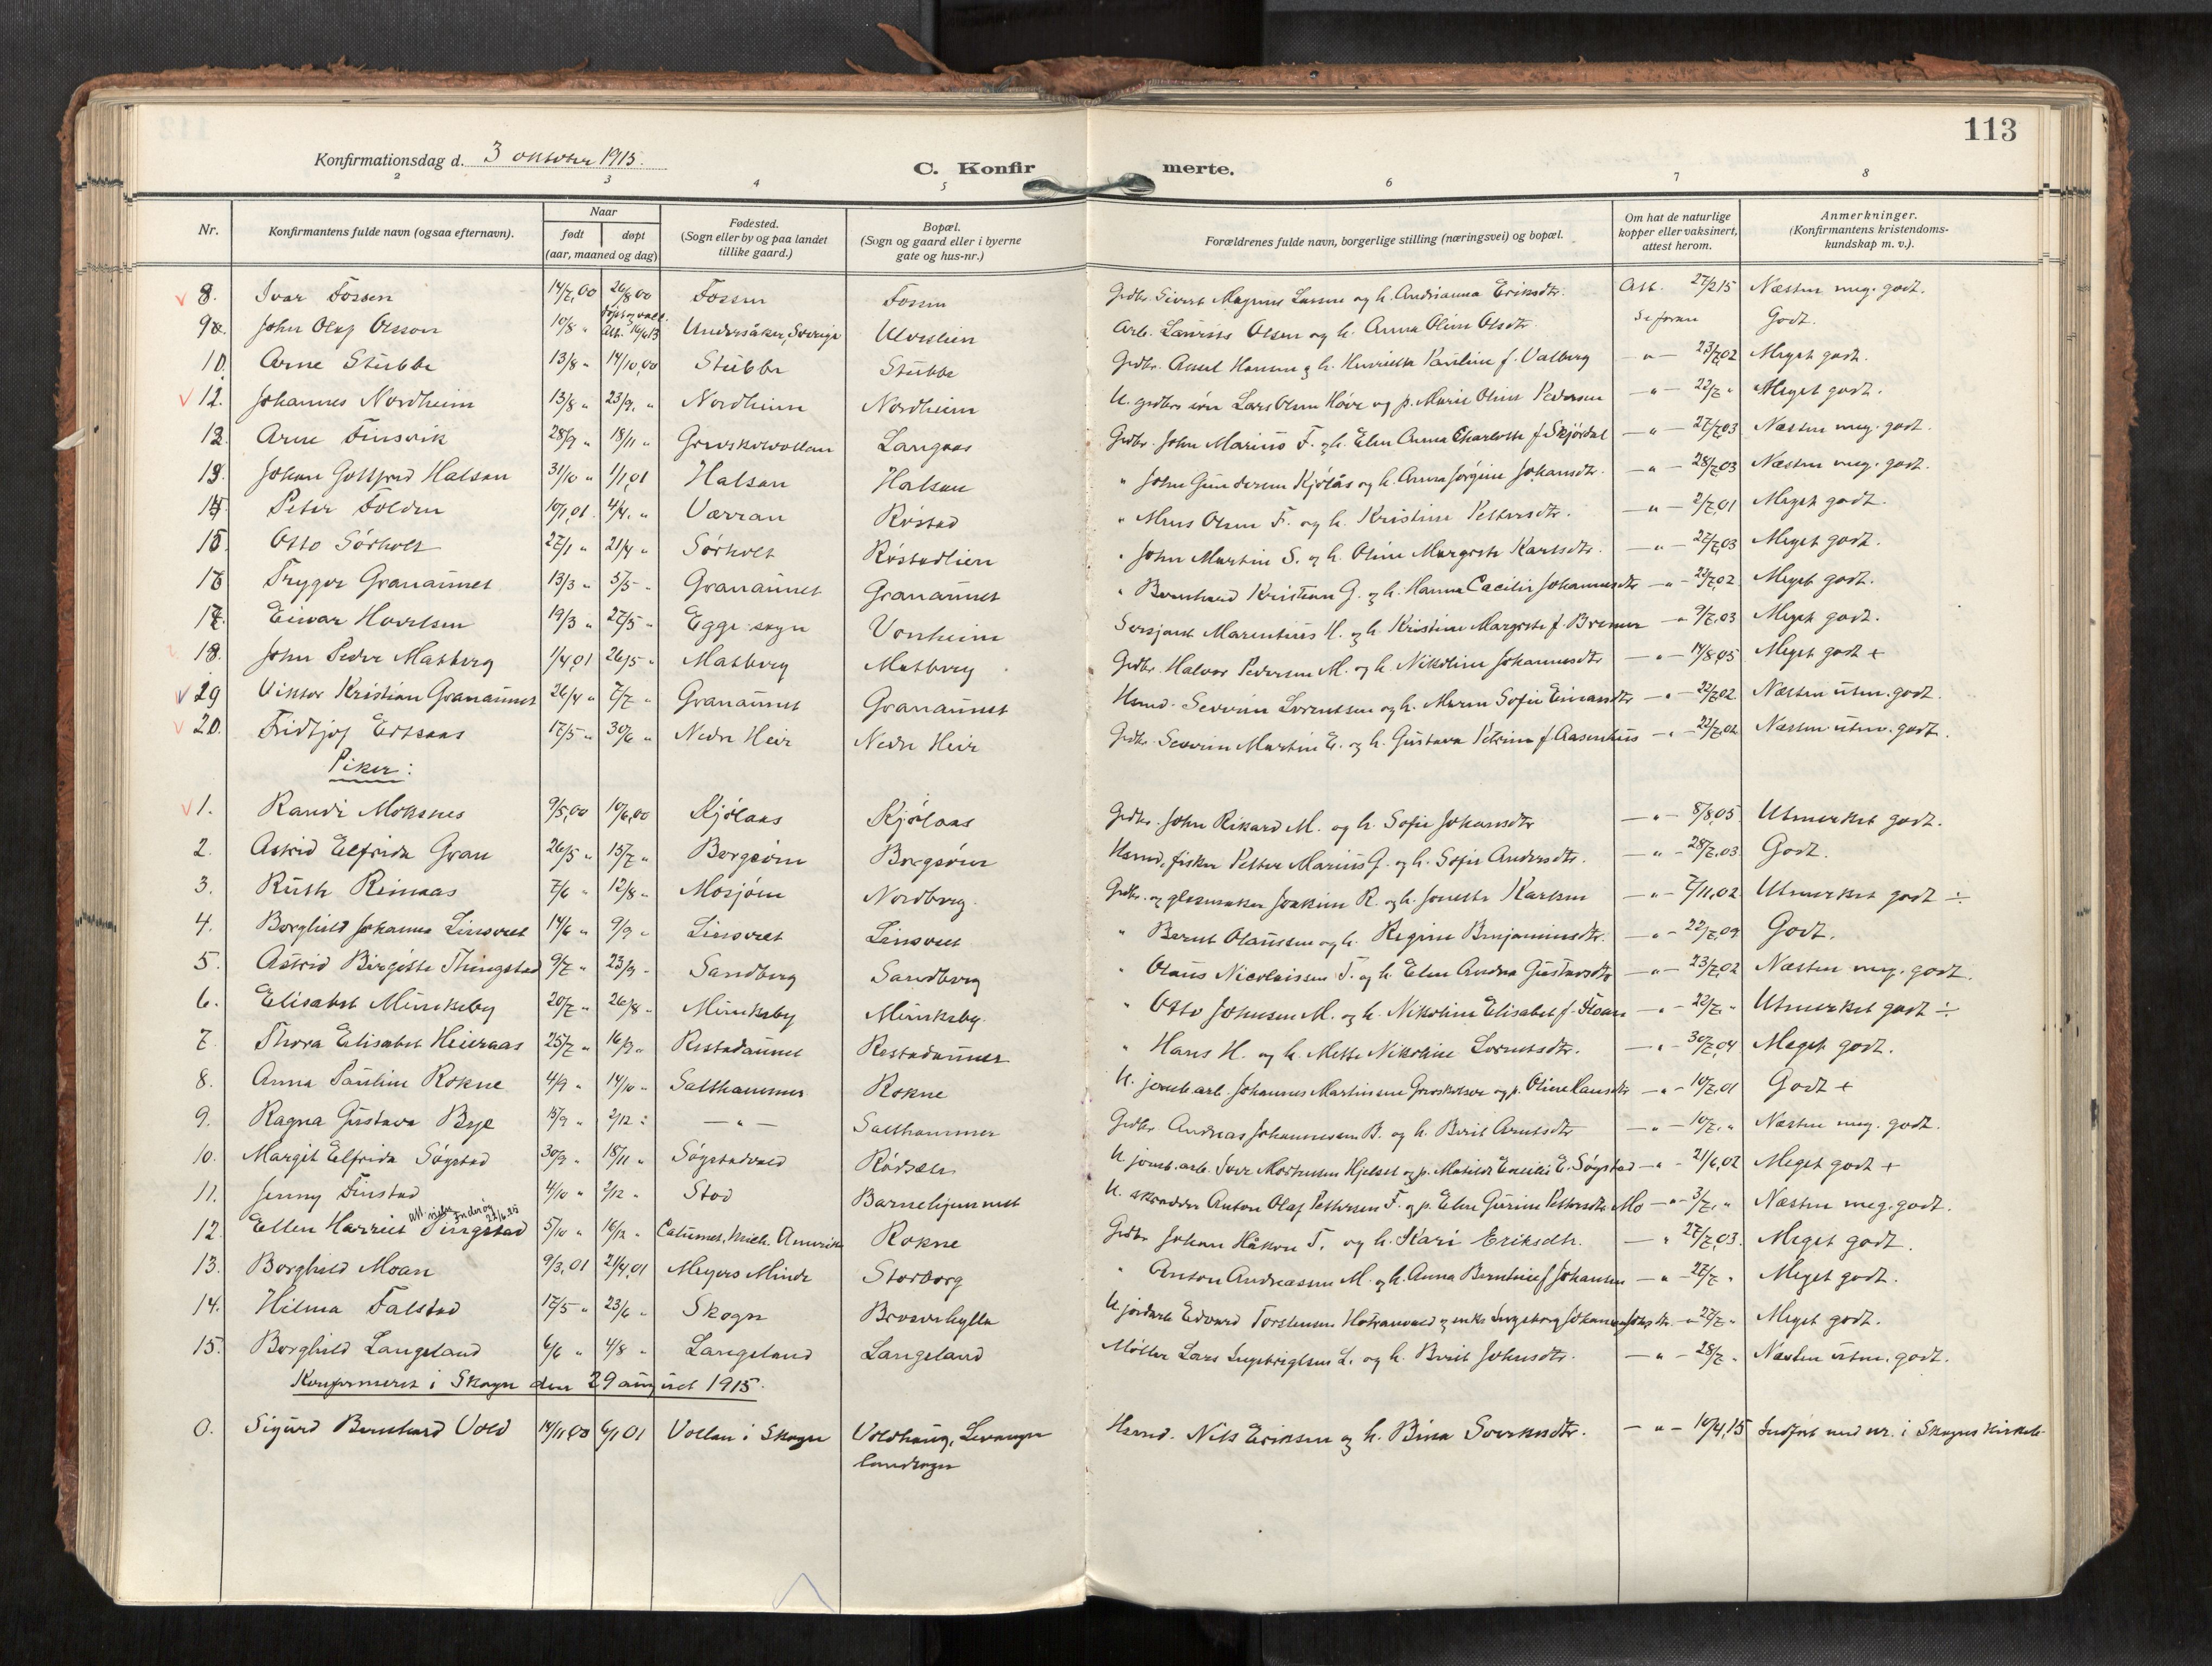 113
Konfirmationsdag d. 3 oktober 1915.
C. Konfirmerte.
2 3 4 5 6 7 8
Nr. | Konfirmantens fulde navn (ogsaa efternavn). | Naar født døpt (aar, maaned og dag) | Fødested. (Sogn eller by og paa landet tillike gaard.) | Bopæl. (Sogn og gaard eller i byerne gate og hus-nr.) | Forældrenes fulde navn, borgerlige stilling (næringsvei) og bopæl. | Om hat de naturlige kopper eller vaksinert, attest herom. | Anmerkninger. (Konfirmantens kristendomskundskap m. v.).
8. Ivar Fossen 14/7,00 26/8 00 Fossen Fossen Grdbr. Sivert Magnus Larsen og h. Andrianna Eriksdtr. Att. 27/2 15 Næsten meg. godt.
9. John Olaf Olsson 10/8 " Att. 16/6 13 Undersåker, Sverige Ulvslien Arb. Laurits Olsen og h. Anna Oline Olsdtr Se foran Godt.
10. Arne Stubbe 13/8 " 14/10,00 Stubbe Stubbe Grdbr. Hansen og h. Henriette Pauline f. Valberg — " — 23/7,02 Meget godt.
12. Johannes Nordheim 13/8 " 23/9. " Nordheim Nordheim U. grdbrs søn Lars Olsen Høve og p. Marie Oline Pedersen — " — 22/7 " Meget godt.
12. Arne Finsvik 28/9 " 18/11 " Grevskovollan Langaas Grdbr. John Marius F. og h. Elen Anna Charlotte f. Skjørdal — " — 27/7,03 Næsten meg. godt.
13. Johan Gottfred Halsan 31/10 " 1/1,01 Halsan Halsan " John Gundersen Kjølås og h. Anna Jørgine Johansdtr. — " — 28/7,03 Næsten meg. godt.
14 Peter Folden 10/1,01 4/4. " Værran Røstad " Olsen F. og h. Kristine Pettersdtr. — " — 2/7,01 Meget godt.
15 Otto Sørholt 27/1 " 21/4 " Sørholt Røstadlien " John Martin S. og h. Oline Margrete Karlsdtr. — " — 27/7,03 Meget godt.
16 Trygve Granaunet 13/3 " 5/5 - Granaunet Granaunet " Bernhard Kristian G. og h. Hanna Cecilie Johannesdtr — " — 22/7,02 Meget godt.
17. Einar Hovelsen 19/3 " 27/5 - Egge sogn Vonheim Sersjant Marentius H. og h. Kristine Margrete f. Bremer — " 9/7,03 Meget godt.
18. John Peder Matberg 1/4,01 26/5 " Matberg Matberg Grdbr. Halvor Pedersen M. og h. Nikoline Johannesdtr — " — 14/8,05 Meget godt +
29 Viktor Kristian Granaunet 26/4 " 7/7 " Granaunet Granaunet Hsmd. Severin Lorentsen og h. Maren Sofie Einarsdtr — " — 22/7,02 Næsten utm. godt.
20. Fridtjof Ertsaas 17/5 " 30/6 " Nedre Heir Nedre Heir Grdbr. Severin Martin E. og h. Gustava Petrine f. Aasenhus — " — 22/7,02 Næsten utm. godt.
Piker:
1. Randi Moksnes 9/5,00 10/6,00 Kjølaas Kjølaas Grdbr. John Rikard M. og h. Sofie Johansdtr — " — 8/8,05 Utmerket godt.
2. Astrid Elfrida Gran 26/5 " 15/7 " Borgsøren Borgsøren Hsmd, fisker Petter Marius G. og h. Sofie Andersdtr. — " — 28/7,03 Godt.
3. Ruth Reinaas 7/6 " 12/8 " Mosjøen Nordberg. Grdbr. og glasmaker Joakim R. og h. Jonette Karlsen — " — 7/11,02 Utmerket godt ÷
4. Borghild Johanna Linsvet 14/6 " 9/9 " Linsvet Linsvet " Bernt Olaussen og h. Regine Benjaminsdtr. — " — 22/7,09 Godt.
5. Astrid Birgitte Thingstad 9/7 " 23/9 - Sandberg Sandberg " Olaus Nicolaissen T. og h. Elen Andrea Gustavsdtr — " — 23/7,02 Næsten meg. godt.
6. Elisabet Munkeby 20/7 " 26/8 - Munkeby Munkeby. " Otto Johnsen M. og h. Nikoline Elisabet f. Floan — " — 22/7 " Utmerket godt ÷
7. Thora Elisabet Heieraas 25/7 " 16/9 " Restadaunet Restadaunet " Hans H. og h. Mette Nikoline Lorentsdtr. — " — 30/7,04 Meget godt.
8. Anna Pauline Rokne 4/9 " 14/10 - Salthammer Rokne U. jernb.arb. Johannes Martinsen og p. Oline Hansdtr — " — 10/7,01 Godt +
9. Ragna Gustava Bye 15/9 " 2/12 " — " — Salthammer Grdbr Andreas Johannesen B. og h. Berit Arntsdtr — " — 10/7. " Næsten meg. godt.
10. Margit Elfrida Søgstad 30/9 " 18/11 " Søgstadvald Rødseth U. jernb.arb. Iver Mortensen Hjelset og p. Matilde E. Søgstad — " — 21/6,02 Meget godt +
11. Jenny Finstad 4/10 " 2/12 " Stod Barnehjemmet U. skrædder Anton Olaf Pettersen F. og p. Elen Gurine Pettersdtr Mo — " — 3/7. " Næsten meg. godt.
Att. vielse Inderøy 22/6 25
12. Ellen Harriet Tingstad 5/10 " 16/12 " Calumet, Mich. Amerika Rokne Grdbr Johan Håkon T. og h. Kari Eriksdtr. — " 27/7,03. Meget godt.
13. Borghild Moan 9/3,01 21/4,01 Meyers Minde Storborg " Anton Andreassen M. og h. Anna Berntine f. Johansen — " — 27/7 " Meget godt.
14. Hilma Falstad 17/5 " 23/6 " Skogn Brovoldhylla U. jordarb Edvard Torstensen Hotranvald og enke Ingeborg — " 27/7 " Meget godt.
15. Borghild Langeland 6/6 " 4/8 " Langeland Langeland Møller Lars Ingebrigtsen L. og h. Berit Johnsdtr. — " — 28/7 " Næsten utm. godt.
Konfirmeret i Skogn den 29 august 1915.
0. Sigurd Bernhard Vold 14/11,00 6/1 01 Vollan i Skogn Voldhaug, Levanger landsogn Hsmd. Nils Eriksen og h. Bina Sverksdtr. — " — 16/4,15 Indført med nr. i Skogns kirkeb.